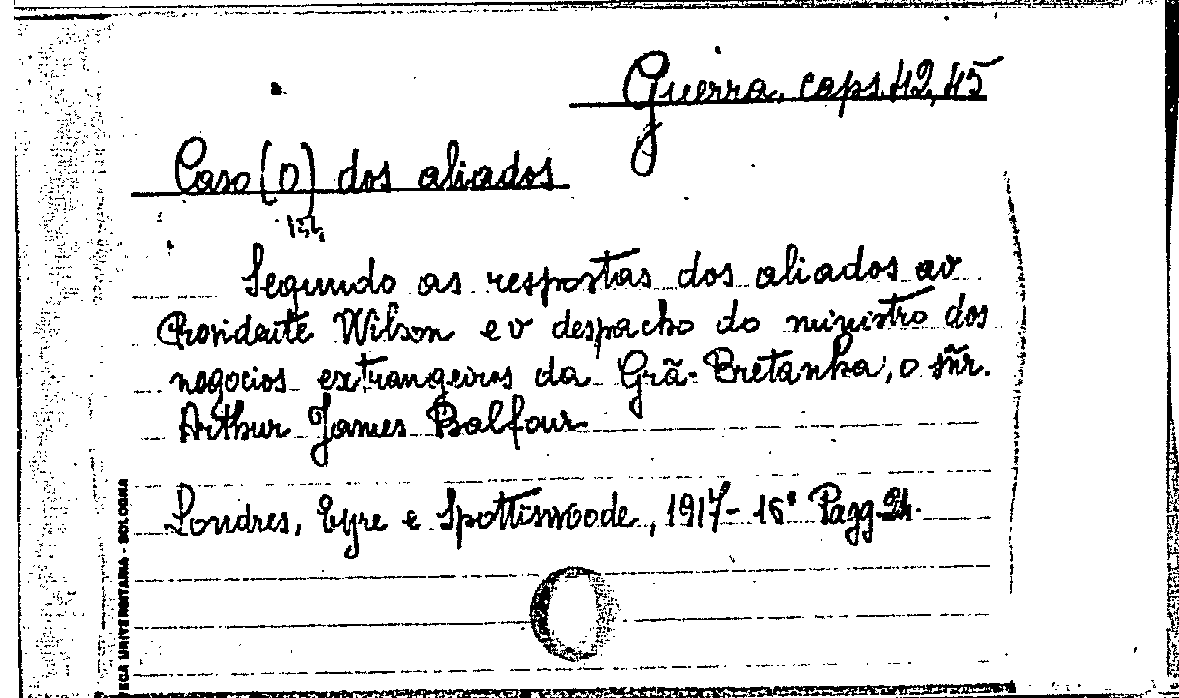 Guerra, caps. 42, 45
Caso (O) dos aliados
Segundo as respostas dos aliados ao
Presidente Wilson e o despacho do ministro dos
negocios extrangeiros da Grã-Bretanha, o sñr.
Arthur James Balfour
Londres, Eyre e Spottiswoode, 1917 - 16° Pagg. 24.
UNIVERSITARIA - BOLOGNA